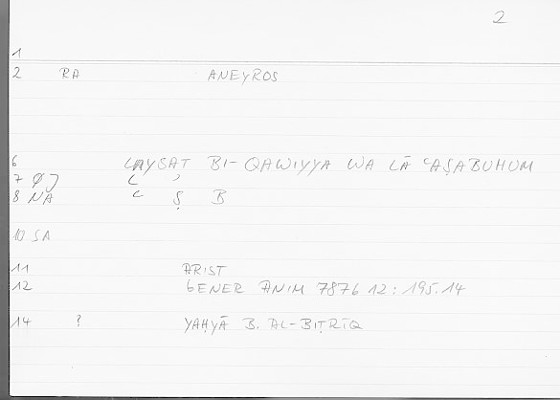 2
1
2 RA ANEYROS
6 LAYSAT BI-QAWIYYA WA LĀ ʿAṢABUHUM
7
8 NA ʿ Ṣ B
10 SA
11 ARIST
12 GENER ANIM 787b 12 : 195.14
14 ? YAḤYĀ B. AL-BIṬRĪQ